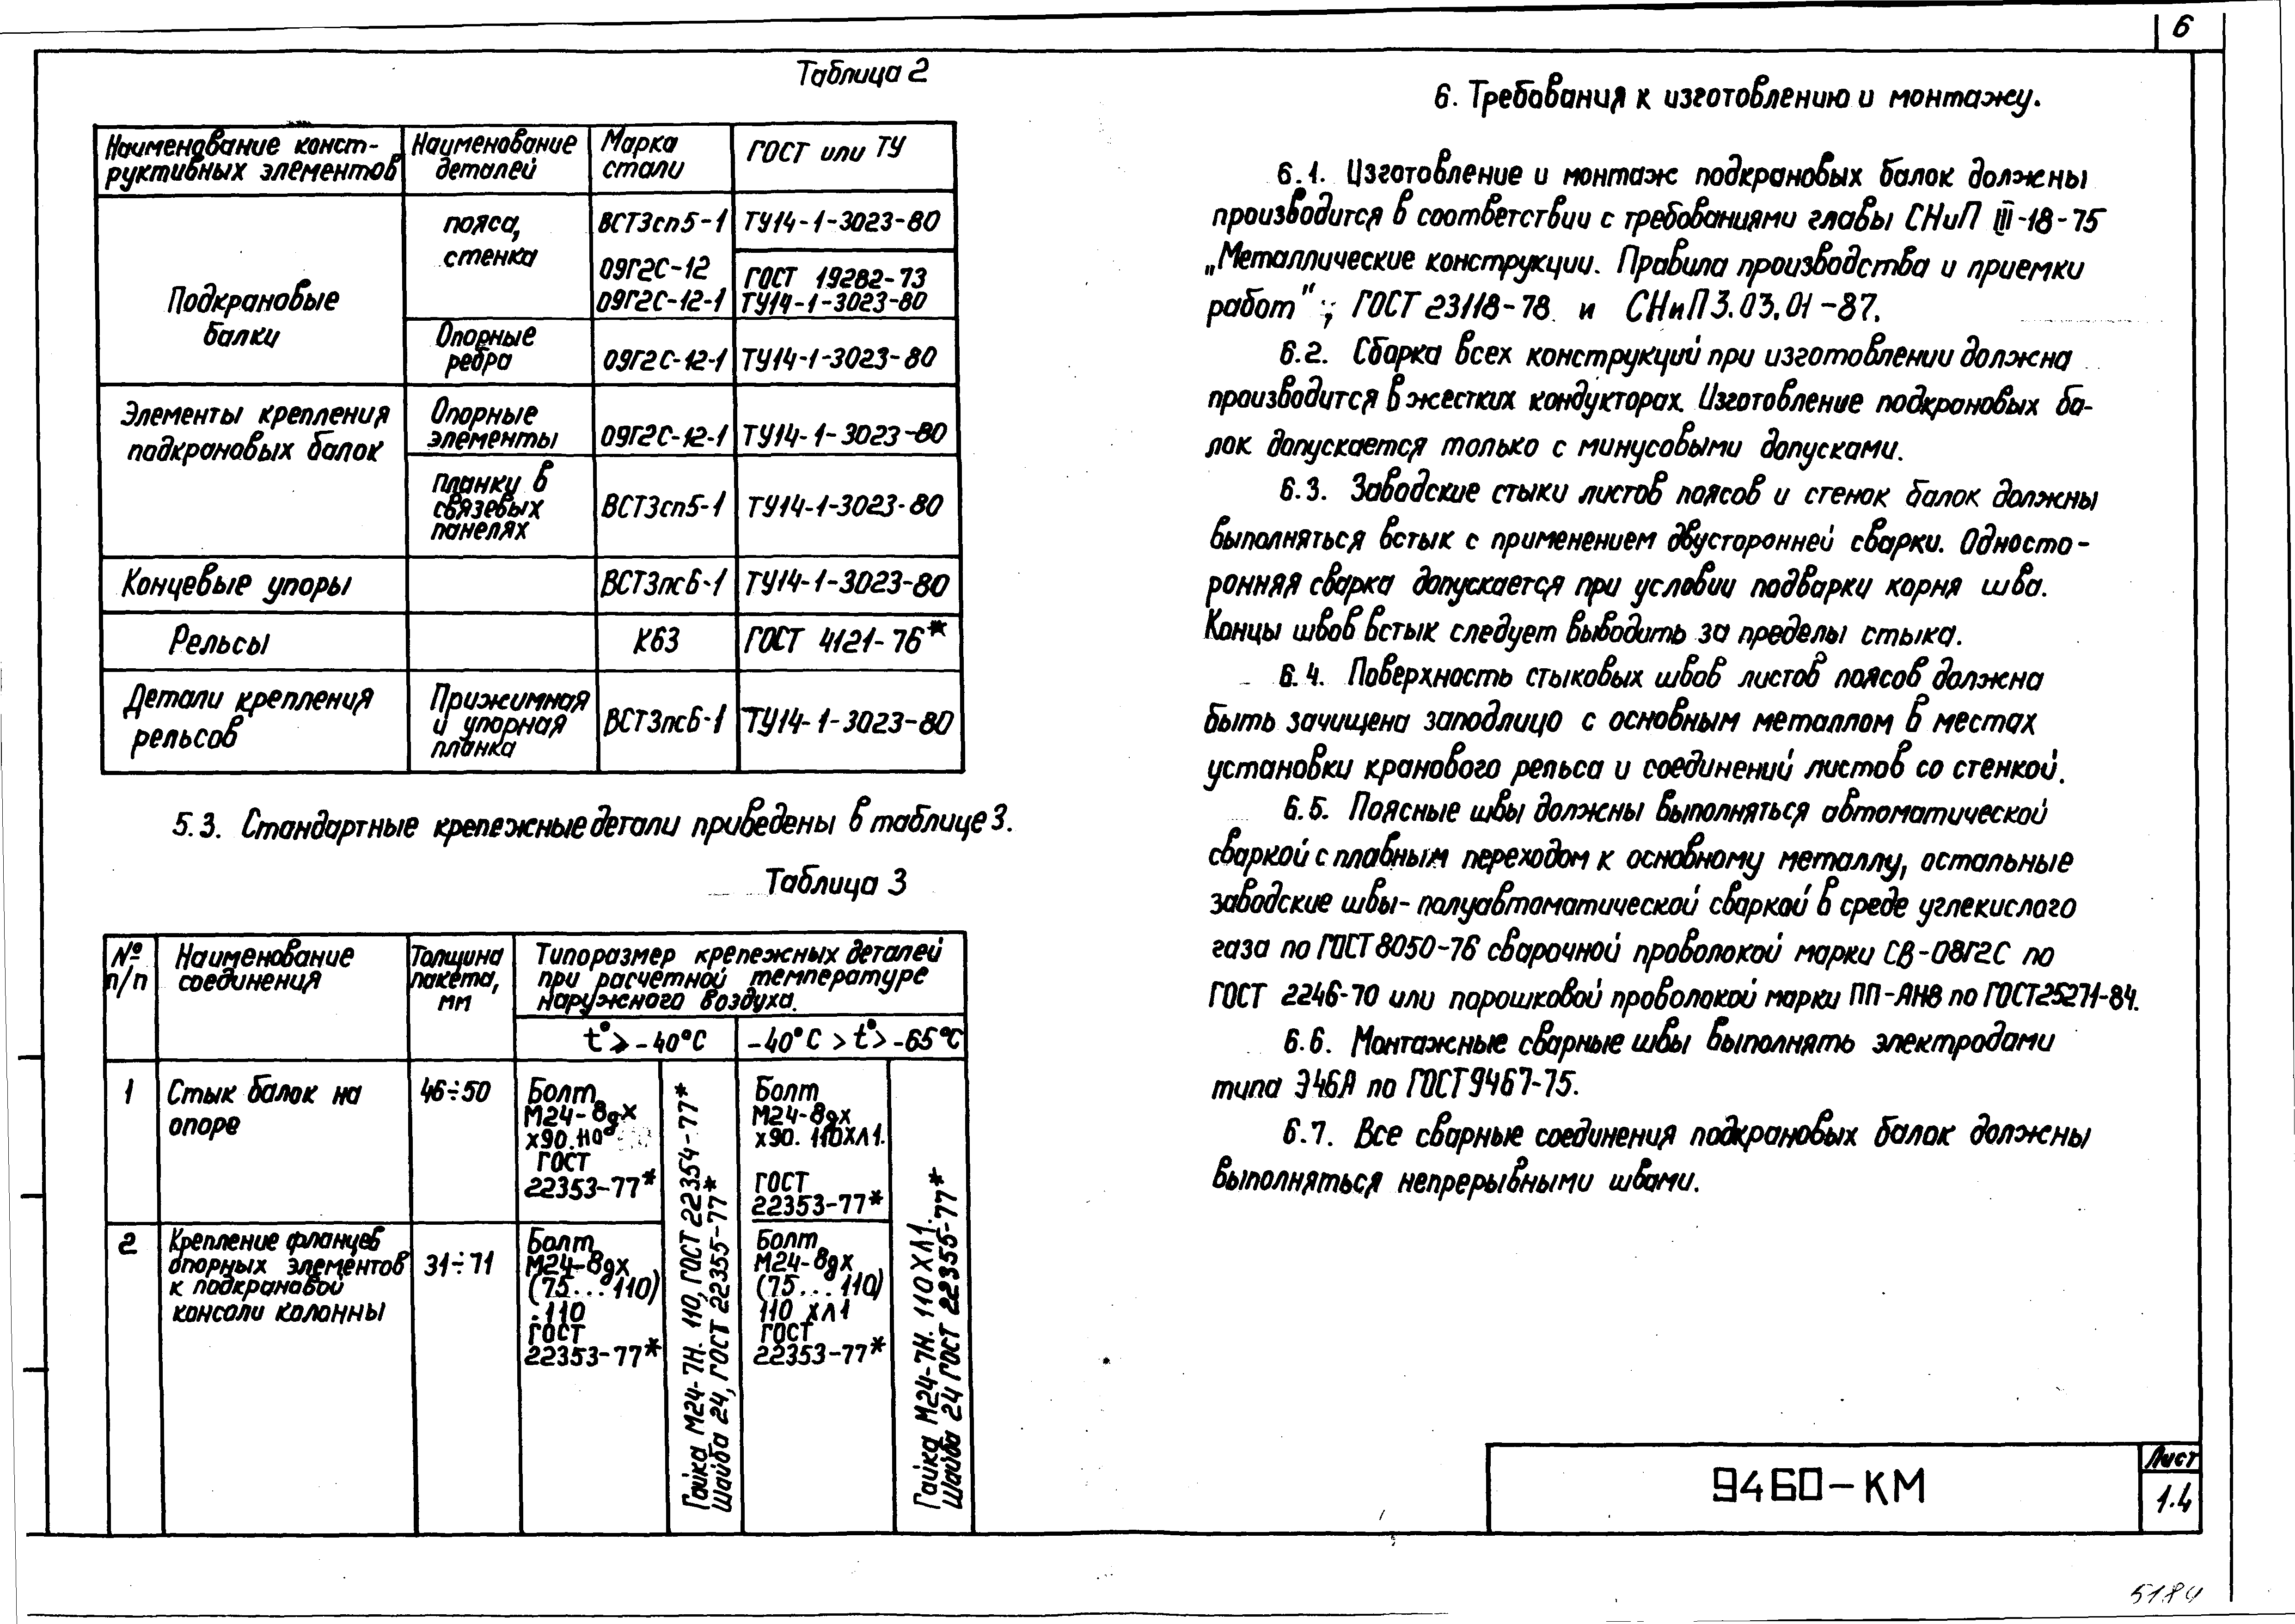 6
Таблица 2
Наименование конст- Наименование Марка ГОСТ или ТУ
руктивных элементов деталей стали
Подкрановые
балки
пояса,
стенка
ВСТ3сп5-1 ТУ14-1-3023-80
09Г2С-12 ГОСТ 19282-73
09Г2С-12-1 ТУ14-1-3023-80
Опорные
ребра
09Г2С-12-1 ТУ14-1-3023-80
Элементы крепления
подкрановых балок
Опорные
элементы
09Г2С-12-1 ТУ14-1-3023-80
планки в
связевых
панелях
ВСТ3сп5-1 ТУ14-1-3023-80
Концевые упоры ВСТ3пс6-1 ТУ14-1-3023-80
Рельсы К63 ГОСТ 4121-76*
Детали крепления
рельсов
Прижимная
и упорная
планка
ВСТ3пс6-1 ТУ14-1-3023-80
5.3. Стандартные крепежные детали приведены в таблице 3.
Таблица 3
№
п/п
Наименование
соединения
Толщина
пакета,
мм
Типоразмер крепежных деталей
при расчетной температуре
наружного воздуха.
t°⩾-40°С
-40°С>t°>-65°С
1
Стык балок на
опоре
46÷50
Болт
М24-8gх
х90.110
ГОСТ
22353-77*
Гайка М24-7Н. 110, ГОСТ 22354-77*
Шайба 24, ГОСТ 22355-77*
Болт
М24-8gх
х90. 110ХЛ1.
ГОСТ
22353-77*
Гайка М24-7Н. 110ХЛ1.
Шайба 24 ГОСТ 22355-77*
2
Крепление фланцев
опорных элементов
к подкрановой
консоли колонны
31÷71
Болт
М24-8gх
(75...110)
.110
ГОСТ
22353-77*
Болт
М24-8gх
(75...110)
110 ХЛ1
ГОСТ
22353-77*
6. Требования к изготовлению и монтажу.
6.1. Изготовление и монтаж подкрановых балок должны
производится в соответствии с требованиями главы СНиП III-18-75
„Металлические конструкции. Правила производства и приемки
работ"; ГОСТ 23118-78 и СНиП 3.03.01-87.
6.2. Сборка всех конструкций при изготовлении должна
производится в жестких кондукторах. Изготовление подкрановых ба-
лок допускается только с минусовыми допусками.
6.3. Заводские стыки листов поясов и стенок балок должны
выполняться встык с применением двусторонней сварки. Односто-
ронняя сварка допускается при условии подварки корня шва.
Концы швов встык следует выводить за пределы стыка.
6.4. Поверхность стыковых швов листов поясов должна
быть зачищена заподлицо с основным металлом в местах
установки кранового рельса и соединений листов со стенкой.
6.5. Поясные швы должны выполняться автоматической
сваркой с плавным переходом к основному металлу, остальные
заводские швы-полуавтоматической сваркой в среде углекислого
газа по ГОСТ 8050-76 сварочной проволокой марки СВ-08Г2С по
ГОСТ 2246-70 или порошковой проволокой марки ПП-АН8 по ГОСТ25271-84.
6.6. Монтажные сварные швы выполнять электродами
типа Э46А по ГОСТ9467-75.
6.7. Все сварные соединения подкрановых балок должны
выполняться непрерывными швами.
9460-КМ
Лист
1.4
5184